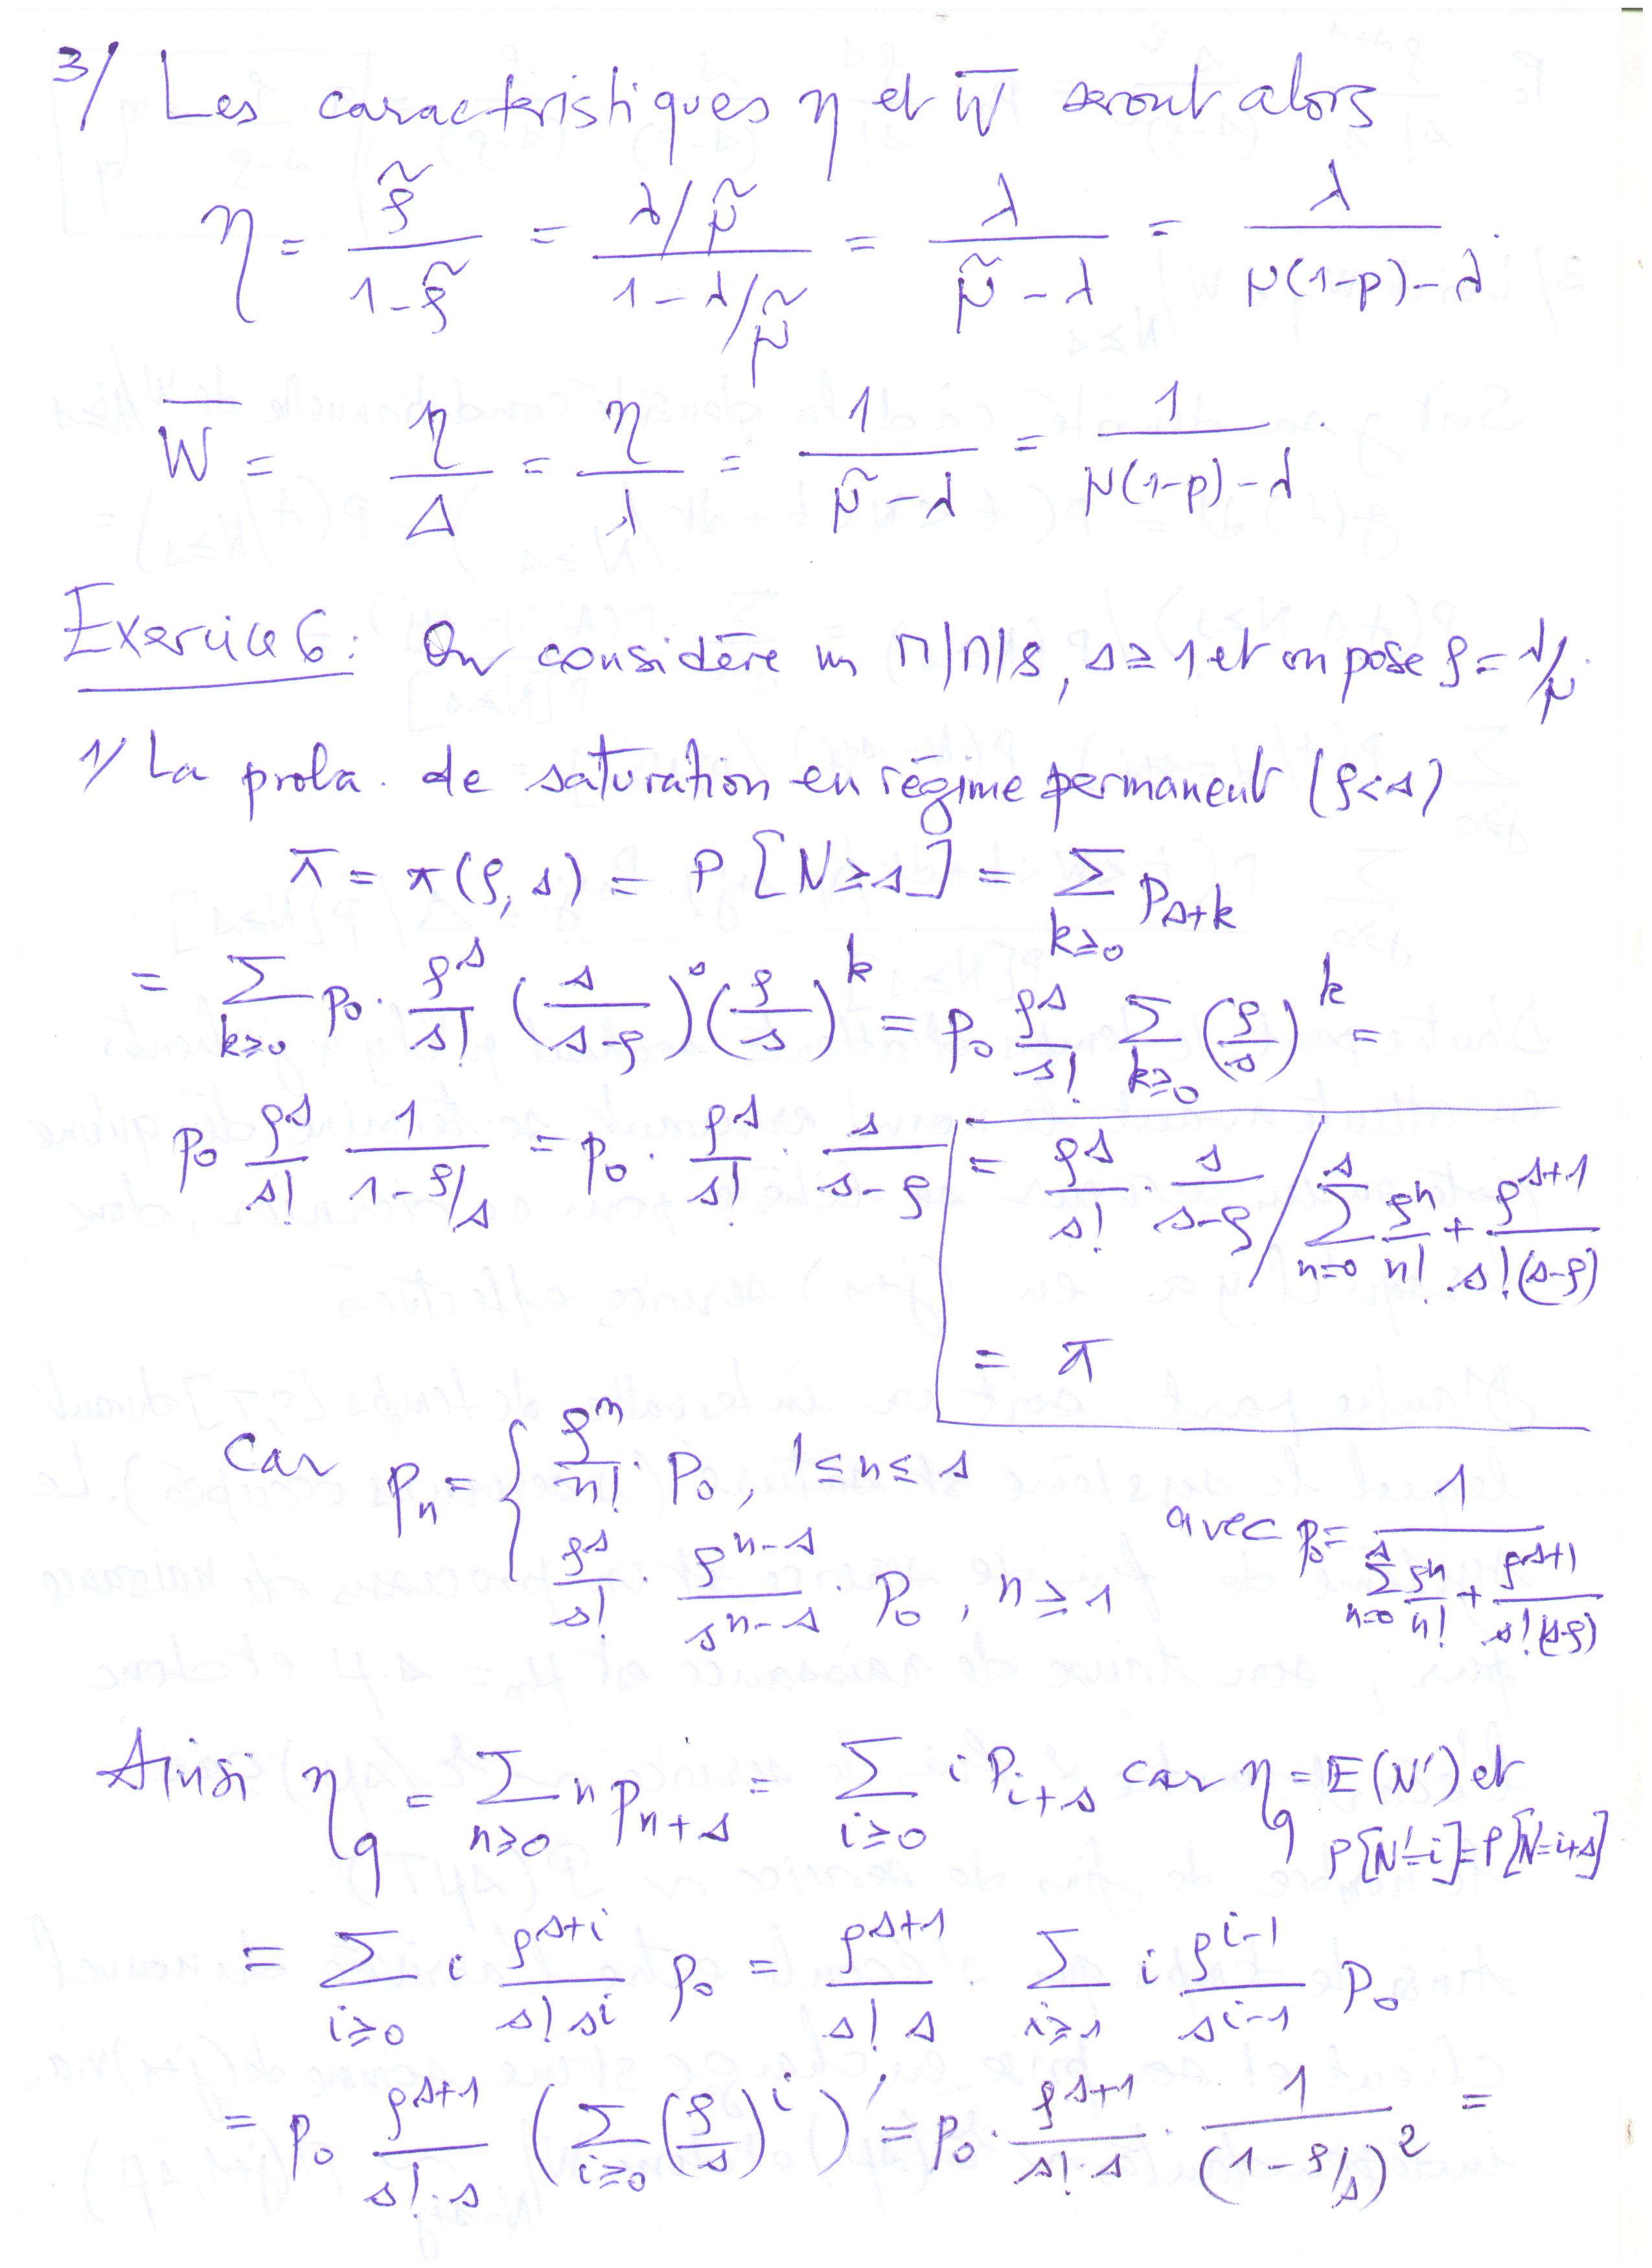 3/ Les caracteristiques η et W̅ seront alors
η = ρ̃ / (1-ρ̃) = (λ/μ̃) / (1 - λ/μ̃) = λ / (μ̃ - λ) = λ / (μ(1-p) - λ).
W̅ = η/Δ = η/λ = 1 / (μ̃ - λ) = 1 / (μ(1-p) - λ)
Exercice 6: On considère un M/M/s, s ≥ 1 et on pose ρ = λ/μ.
1/ La proba. de saturation en régime permanent (ρ<s)
π = π(ρ, s) = P[N ≥ s] = Σ_{k≥0} P_{s+k}
= Σ_{k≥0} p₀ · ρ^s/s! (s/(s-ρ))^0 (ρ/s)^k = p₀ ρ^s/s! Σ_{k≥0} (ρ/s)^k =
p₀ ρ^s/s! 1/(1-ρ/s) = p₀ · ρ^s/s! · s/(s-ρ) = ρ^s/s! · s/(s-ρ) / Σ_{n=0}^{s} ρ^n/n! + ρ^{s+1}/(s!(s-ρ))
= π
Car p_n = { ρ^n/n! · p₀, 1 ≤ n ≤ s
ρ^s/s! · ρ^{n-s}/s^{n-s} · p₀, n ≥ s
avec p₀ = 1 / (Σ_{n=0}^{s} ρ^n/n! + ρ^{s+1}/(s!(s-ρ)))
Ainsi η_q = Σ_{n≥0} n p_{n+s} = Σ_{i≥0} i P_{i+s} car η_q = E(N') et
P[N'=i] = P[N=i+s]
= Σ_{i≥0} i ρ^{s+i}/(s! s^i) p₀ = ρ^{s+1}/(s! s) · Σ_{i≥1} i ρ^{i-1}/s^{i-1} p₀
= p₀ ρ^{s+1}/(s!·s) (Σ_{i≥0} (ρ/s)^i)' = p₀ · ρ^{s+1}/(s!·s) · 1/(1-ρ/s)² =